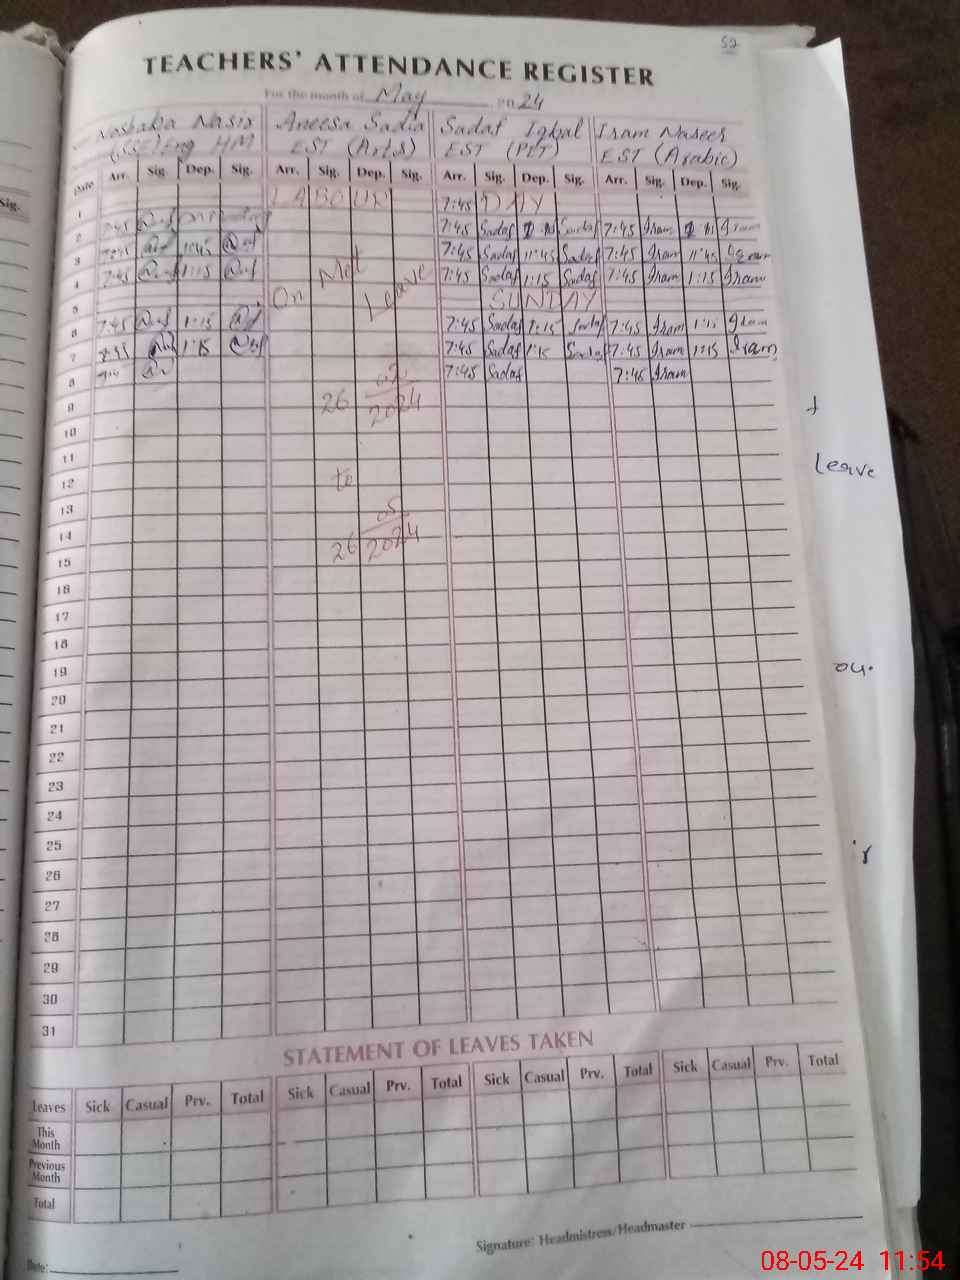 52
TEACHERS' ATTENDANCE REGISTER
For the month of May 2024
Noshaba Nasir Aneesa Sadia Sadaf Iqbal Iram Naseer
(SSE) Eng HM EST (Arts) EST (PET) EST (Arabic)
Date Arr. Sig. Dep. Sig. Arr. Sig. Dep. Sig. Arr. Sig. Dep. Sig. Arr. Sig. Dep. Sig.
Sig.
1 LABOUR 7:45 DAY
2 7:45 7:45 Sadaf Sadaf 7:45 Iram Iram
3 7:45 11:45 7:45 Sadaf 11:45 Sadaf 7:45 Iram 11:45 Iram
4 7:45 1:15 7:45 Sadaf 1:15 Sadaf 7:45 Iram 1:15 Iram
On Mat Leave
5 SUNDAY
6 7:45 1:15 7:45 Sadaf 1:15 Sadaf 7:45 Iram 1:15 Iram
7 7:45 1:15 7:45 Sadaf 1:15 Sadaf 7:45 Iram 1:15 Iram
8 7:45 Sadaf 7:45 Iram
26 02 2024
9
10
11
leave
12 to
13
14 26 05 2024
15
16
17
18
19
ou.
20
21
22
23
24
25
26
27
28
29
30
31
STATEMENT OF LEAVES TAKEN
Leaves Sick Casual Prv. Total Sick Casual Prv. Total Sick Casual Prv. Total Sick Casual Prv. Total
This Month
Previous Month
Total
Signature: Headmistress/Headmaster
Date:
08-05-24 11:54